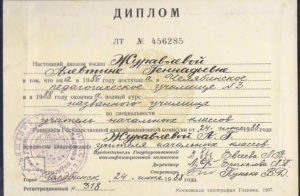 ДИПЛОМ
ЛТ № 456285
Настоящий диплом выдан Журавлевой
Алевтине Геннадьевне
в том, что она в 19 году поступила в Челябинское
педагогическое училище № 3
и в 19 году окончила полный курс
названного училища
по специальности
учитель начальных классов
Решением Государственной квалификационной комиссии от 24 июня
Журавлевой А. Г.
учителя начальных классов
Председатель Государственной
квалификационной комиссии
Город Челябинск 24 июня
Регистрационный № 318
Московская типография Гознака.